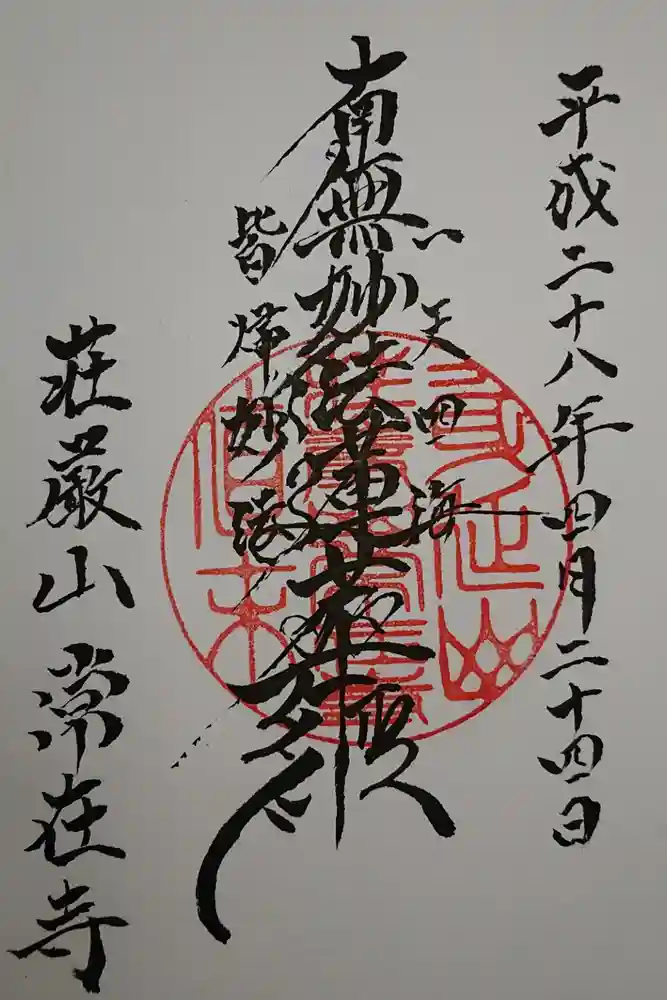 平成二十八年四月二十四日
一天四海
南無妙法蓮華経
皆帰妙法
荘厳山 常在寺
身延山